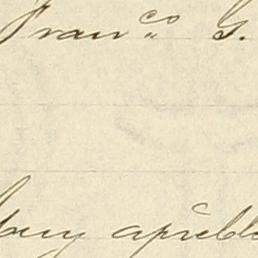 Franco G.
Muy apreble